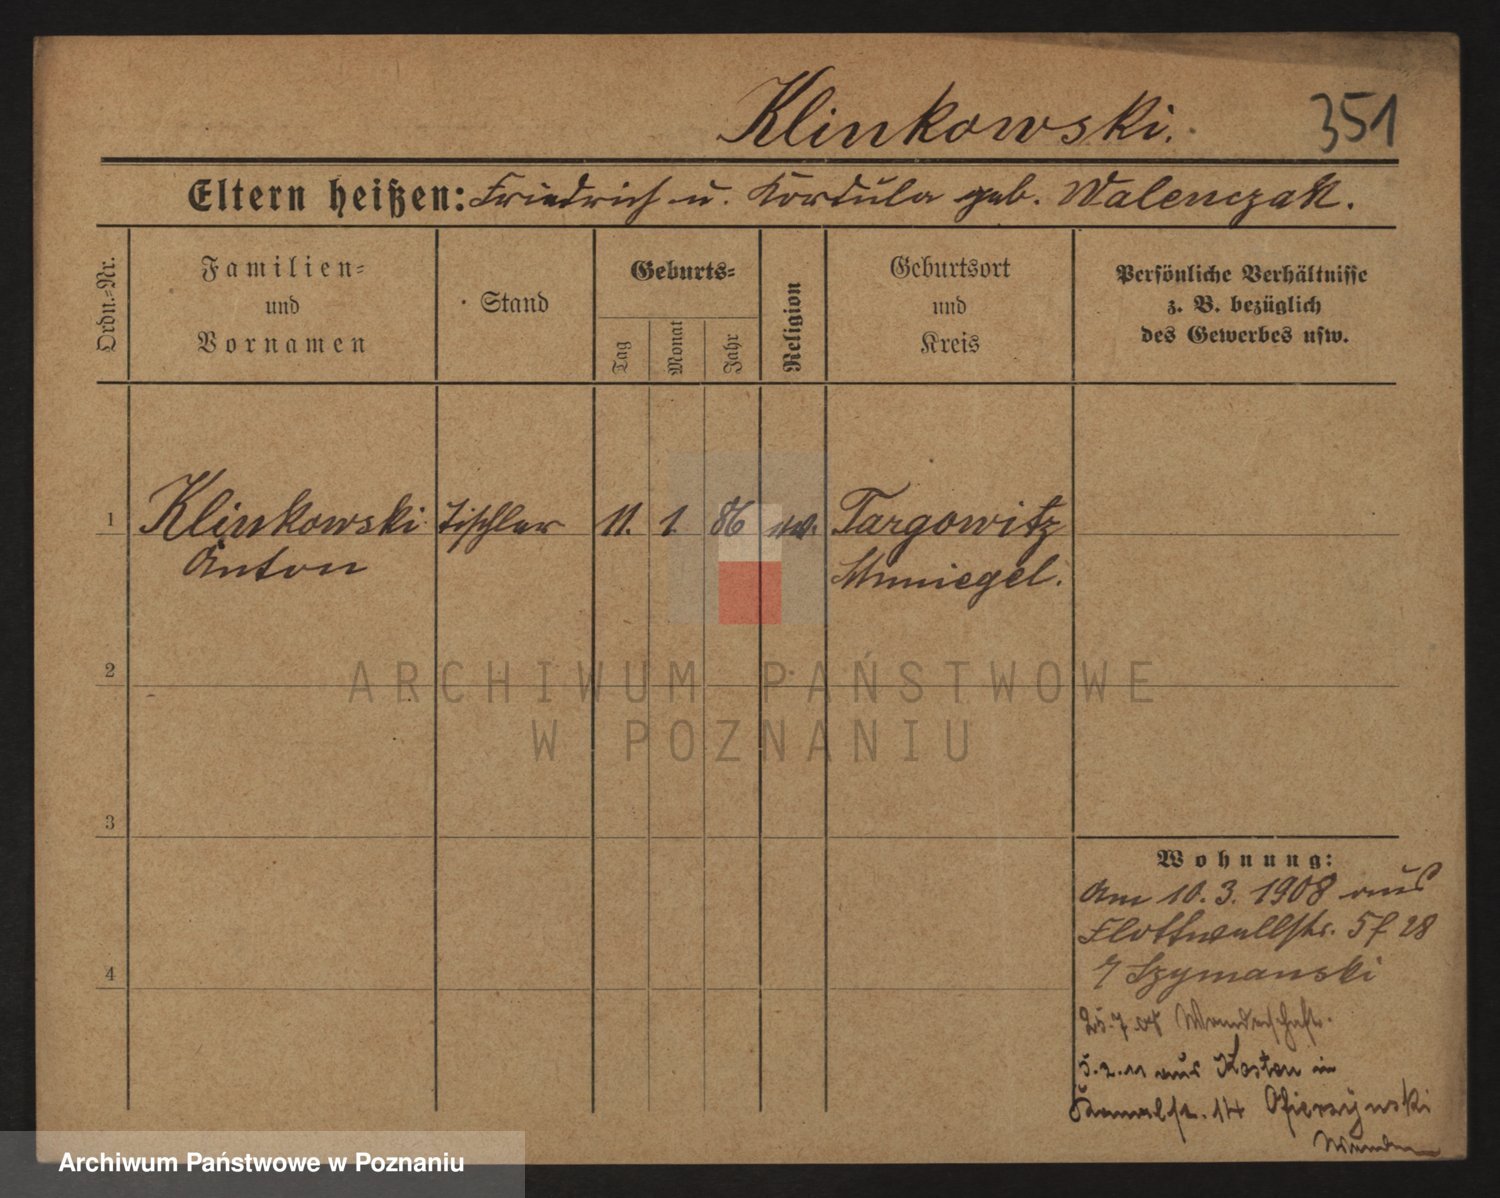 Klinkowski.
351
Eltern heißen: Friedrich u. Kordula geb. Walenczak.
Ordn.-Nr.
Familien-
und
Vornamen
Stand
Geburts-
Tag
Monat
Jahr
Religion
Geburtsort
und
Kreis
Persönliche Verhältnisse
z. B. bezüglich
des Gewerbes usw.
1 Klinkowski Tischler 11. 1. 86 Targowitz
Anton Schmiegel.
2
3
4
Wohnung:
Am 10. 3. 1908 aus
Flottwellstr. 5
Szymanski
25.7.08 Wanderschaft.
5.2.11 aus Kosten in
Kanalstr. 14
ARCHIWUM PAŃSTWOWE
W POZNANIU
Archiwum Państwowe w Poznaniu